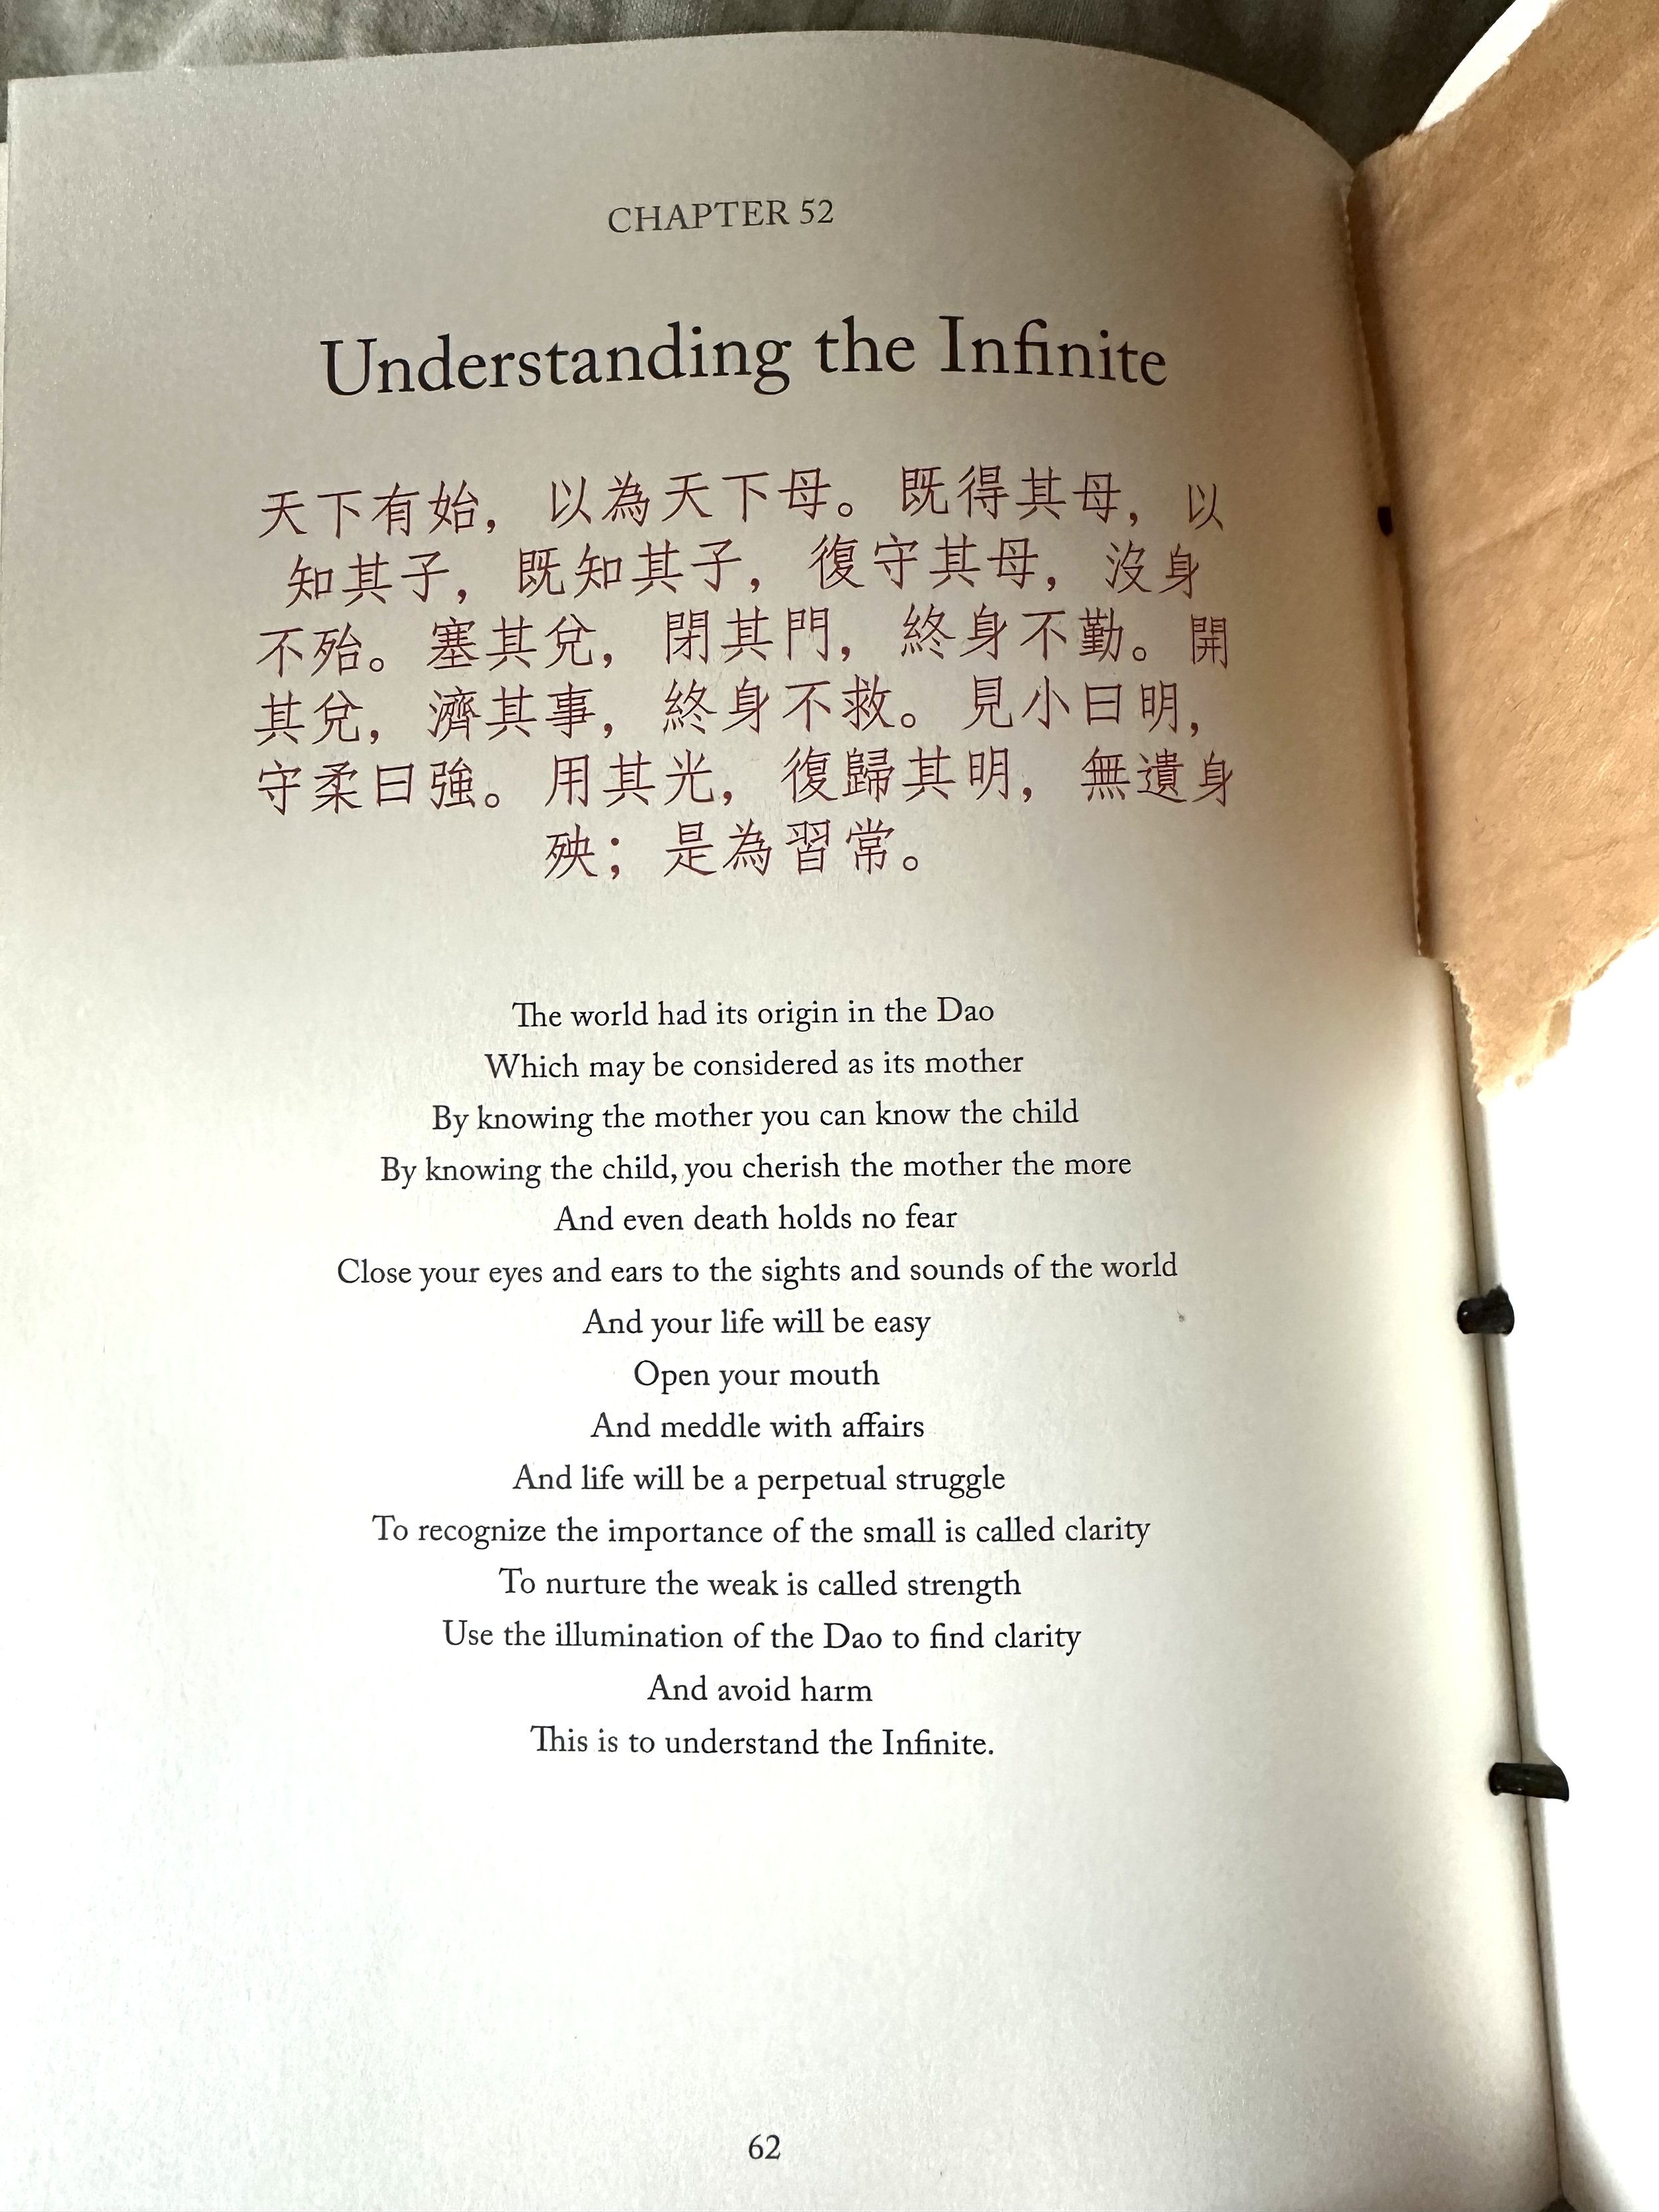 CHAPTER 52
Understanding the Infinite
天下有始，以為天下母。既得其母，以
知其子，既知其子，復守其母，沒身
不殆。塞其兌，閉其門，終身不勤。開
其兌，濟其事，終身不救。見小曰明，
守柔曰強。用其光，復歸其明，無遺身
殃；是為習常。
The world had its origin in the Dao
Which may be considered as its mother
By knowing the mother you can know the child
By knowing the child, you cherish the mother the more
And even death holds no fear
Close your eyes and ears to the sights and sounds of the world
And your life will be easy
Open your mouth
And meddle with affairs
And life will be a perpetual struggle
To recognize the importance of the small is called clarity
To nurture the weak is called strength
Use the illumination of the Dao to find clarity
And avoid harm
This is to understand the Infinite.
62